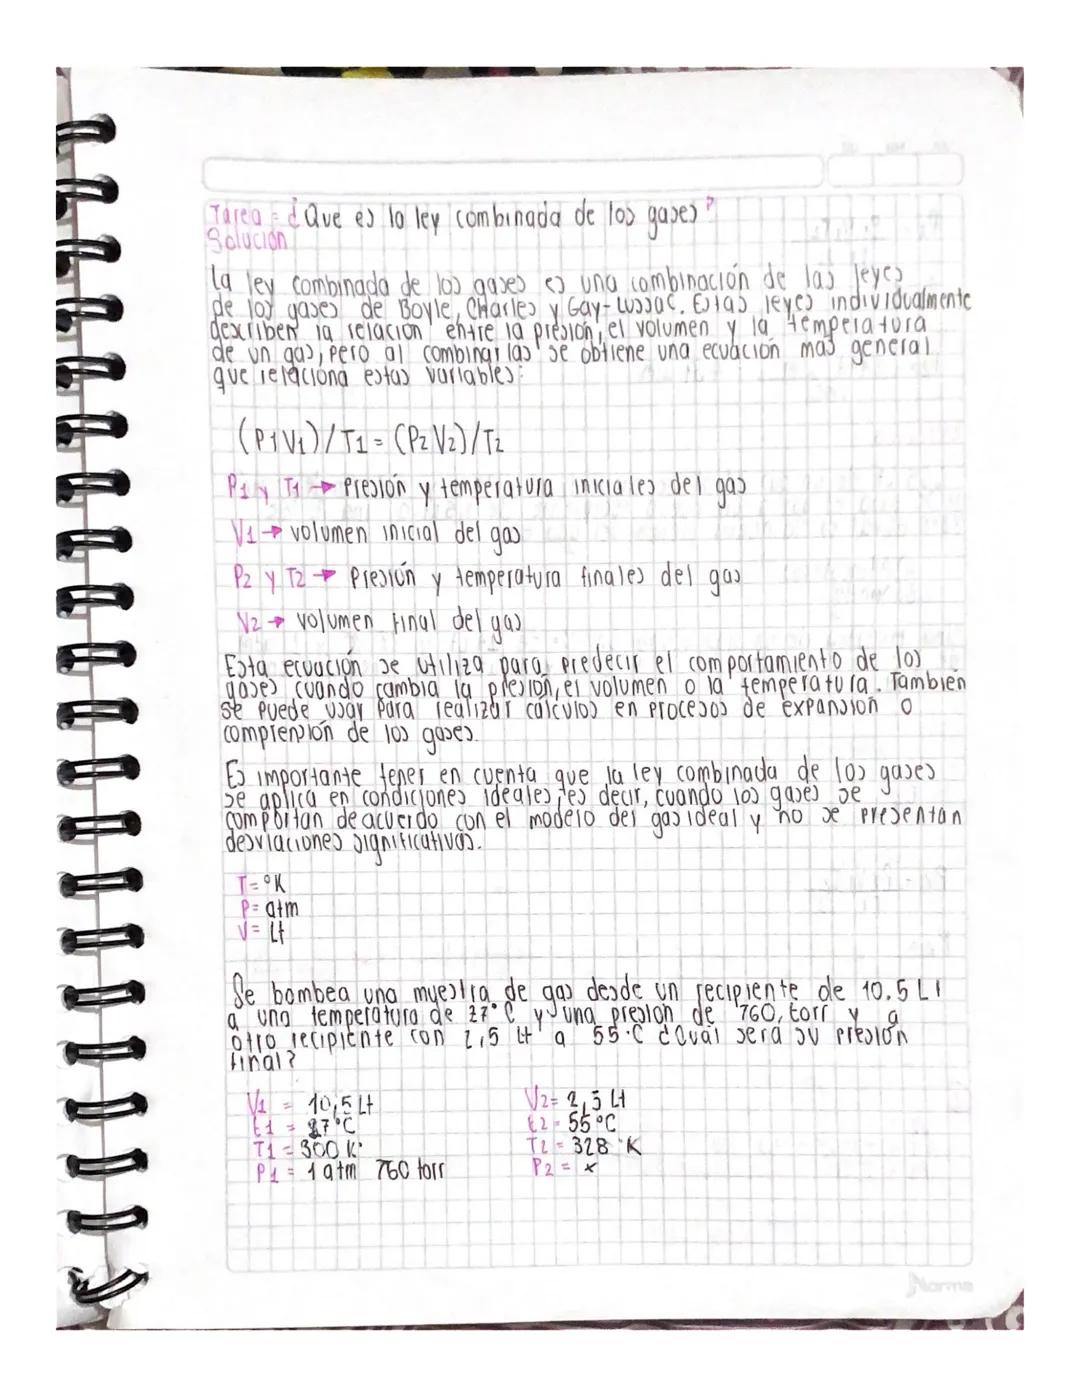 Tarea = ¿Que es la ley combinada de los gases?
Solucion
la ley combinada de los gases es una combinación de las leyes
de los gases de Boyle, Charles y Gay-Lussac. Estas leyes individualmente
describen la relacion entre la presion, el volumen y la temperatura
de un gas, pero al combinarlas se obtiene una ecuación mas general
que relaciona estas variables:
(P1V1)/T1 = (P2V2)/T2
P1 y T1 → Presión y temperatura iniciales del gas
V1 → volumen inicial del gas
P2 y T2 → Presión y temperatura finales del gas
V2 → volumen final del gas
Esta ecuación se utiliza para predecir el comportamiento de los
gases cuando cambia la presion, el volumen o la temperatura. También
se puede usar para realizar calculos en procesos de expansion o
comprensión de los gases.
Es importante tener en cuenta que la ley combinada de los gases
se aplica en condiciones ideales, es decir, cuando los gases se
comportan de acuerdo con el modelo del gas ideal y no se presentan
desviaciones significativas.
T= °K
P= atm
V= Lt
Se bombea una muestra de gas desde un recipiente de 10.5 Lt
a una temperatura de 27°C y una presion de 760, torr y a
otro recipiente con 2,5 Lt a 55°C ¿Cuál sera su presion
final?
V1 = 10,5 Lt V2= 2,5 Lt
t1 = 27°C t2= 55°C
T1 = 300 K° T2 = 328 °K
P1 = 1 atm 760 torr P2 = x
Norma